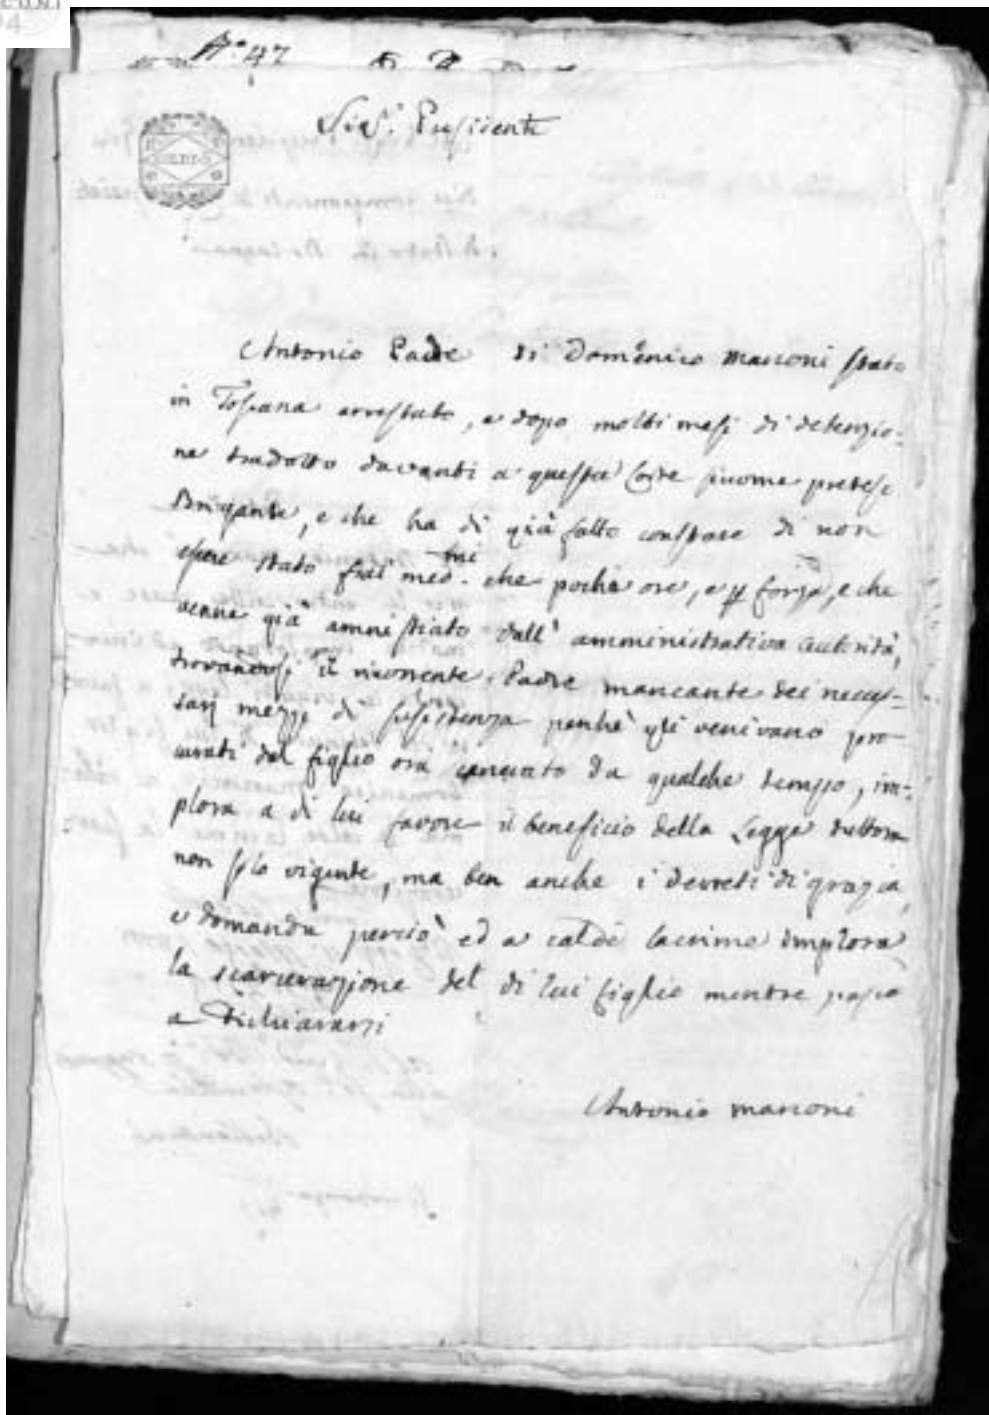 N.° 47
Sig.r Presidente
Antonio Padre di Domenico Marconi stato
in Toscana arrestato, e dopo molti mesi di detenzio=
ne tradotto davanti a questa Corte siccome preteso
Brigante, e che ha di già fatto constare di non
essere stato frai med.mi che poche ore, e p forza, e che
venne già amnistiato dall' amministrativa autorità,
trovandosi il ricorrente Padre mancante dei neces=
sarj mezzi di sussistenza perchè gli venivano pro
curati dal figlio ora carcerato da qualche tempo, im=
plora a di lui favore il beneficio della Legge tuttora
non solo vigente, ma ben anche i decreti di grazia,
e domanda perciò ed a calde lacrime implora
la scarcerazione del di lui figlio mentre passa
a dichiararsi
Antonio Marconi